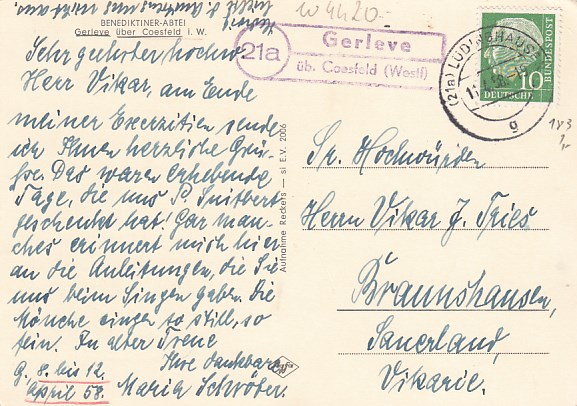 w 4420.-
BENEDIKTINER-ABTEI
Gerleve über Coesfeld i. W.
Sehr geehrter hochw.
Herr Vikar, am Ende
meiner Exerzitien sende
ich Ihnen herzliche Grü-
ße. Das waren erhebende
Tage, die uns P. Suitbert
geschenkt hat. Gar man-
ches erinnert mich hier
an die Anleitungen, die Sie
uns beim Singen gaben. Die
Mönche singen so still, so
fein. In alter Treue
Ihre dankbare
Maria Schröter.
G. 8. bis 12.
April 58.
Aufnahme Reckels — si E.V. 2006
21a
Gerleve
üb. Coesfeld (Westf)
(21a) LÜDINGHAUSEN
g
10
DEUTSCHE
BUNDESPOST
183
Sr. Hochwürden
Herrn Vikar J. Tries
Braunshausen,
Sauerland,
Vikarie.